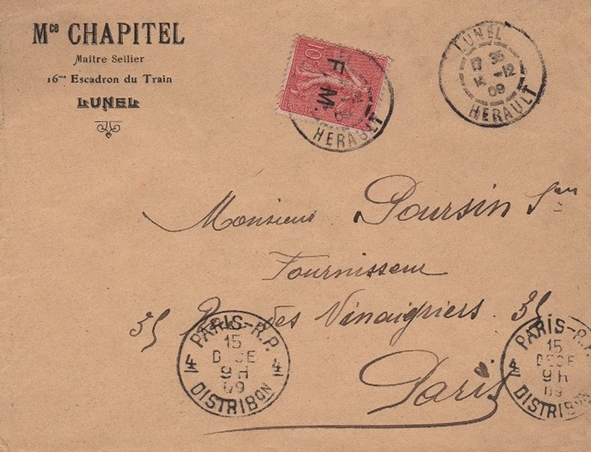 Mce CHAPITEL
Maître Sellier
16me Escadron du Train
LUNEL
10c
F M.
HERAULT
LUNEL
13 35
14 -12
09
HERAULT
Monsieur Poursin
Fournisseur
35 Rue des Vinaigriers. 35
Paris
PARIS-R.P.
15
DECE
9H
09
4 4
DISTRIBON
PARIS-R.P.
15
DECE
9H
09
4
DISTRIBON